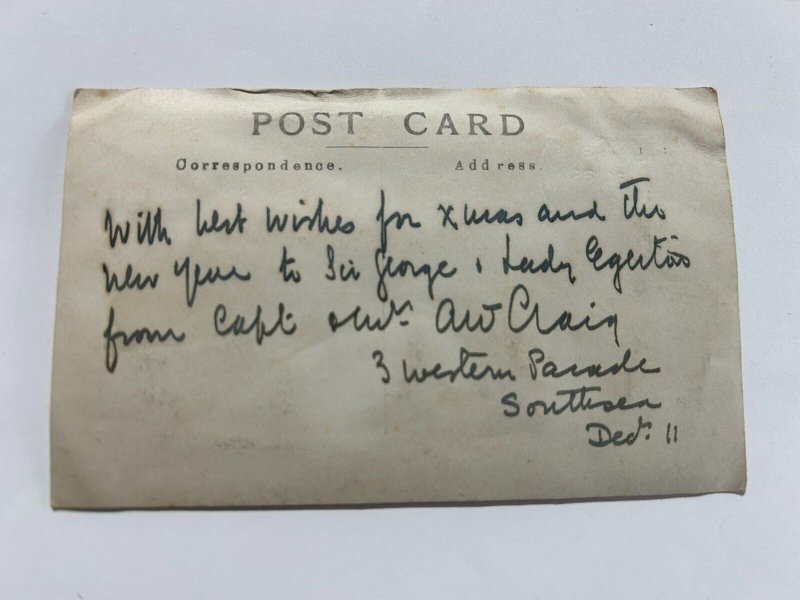 POST CARD
Correspondence. Address.
With best wishes for Xmas and the
new year to Sir George & Lady Egerton
from Capt & Mrs AW Craig
3 Western Parade
Southsea
Decr. 11